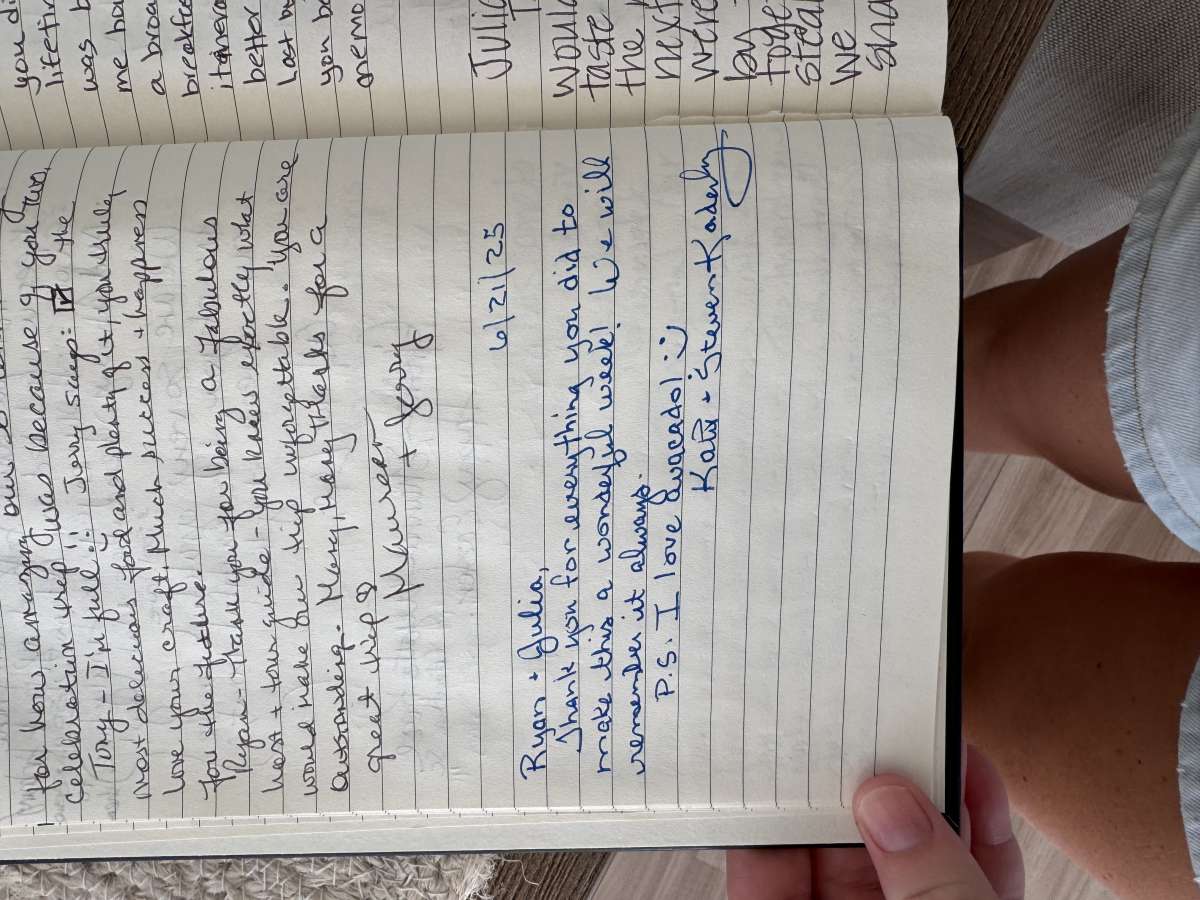 for how amazing it was because of you two,
celebration trip!! Jerry says: ☑ the
I'm full!!
most delicious food and plenty of it, you truly
love your craft. Much success + happiness
for the future.
Ryan - Thank you for being a fabulous
host + tour guide - you knew exactly what
would make our trip unforgettable. You are
outstanding. Many, many thanks for a
great trip!
Maureen + Jerry
6/21/25
Ryan + Julia,
Thank you for everything you did to
make this a wonderful week! We will
remember it always.
P.S. I love avacado! :)
Katie + Steven Kaderly
you di
lifetim
was b
me ho
a broa
breakfa
itinera
better
Last bu
you bo
memo
Julia
would
taste
the
next
were
by
toge
steal
we
sna